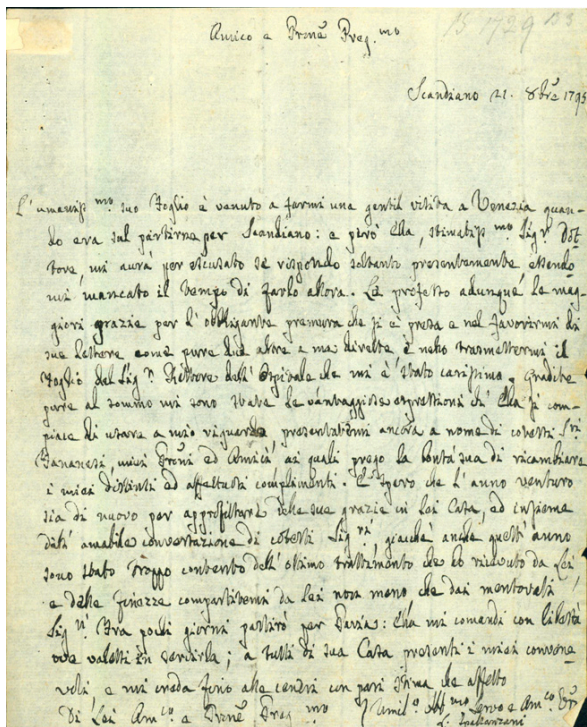 Amico e Prone Preg.mo
B 1729 133
Scandiano 21. 8bre 1795
L'umaniss.mo suo Foglio è venuto a farmi una gentil visita a Venezia quan-
do era sul partirne per Scandiano: e però Ella, stimatiss.mo Sig.r Dot-
tore, mi aurà per escusato se rispondo soltanto presentemente, essendo
mi mancato il tempo di farlo allora. Le professo adunque le mag-
giori grazie per l'obbligante premura che si è presa e nel favorirmi di
sue lettere come pure di altre a me dirette e nello trasmettermi il
Foglio del Sig.r Rettore dell'Ospitale che mi è stato carissimo. Gradite
pure al sommo mi sono state le vantaggiose espressioni ch'Ella si com-
piace di usare a mio riguardo, presentatemi ancora a nome di cotesti S.ri
miei Proni ed Amici, ai quali prego la bontà sua di ricambiare
i miei distinti ed affettuosi complimenti. E spero che l'anno venturo
sia di nuovo per approfittare delle sue grazie in Lei Casa, ed insieme
dell'amabile conversazione di cotesti Sig.ri, giacchè anche quest'anno
sono stato troppo contento dell'ottimo trattamento che ho ricevuto da Lei
e delle finezze compartitemi da Lei non meno che dai mentovati
Sig.ri Fra pochi giorni partirò per Pavia: Ella mi comandi con libertà
ove valessi in servirla; a tutti di sua Casa presenti i miei convene
voli e mi creda fino alle ceneri con pari stima che affetto
Di Lei Am.co e Prone Preg.mo Umil.o Obb.mo Servo e Am.co
L. Spallanzani